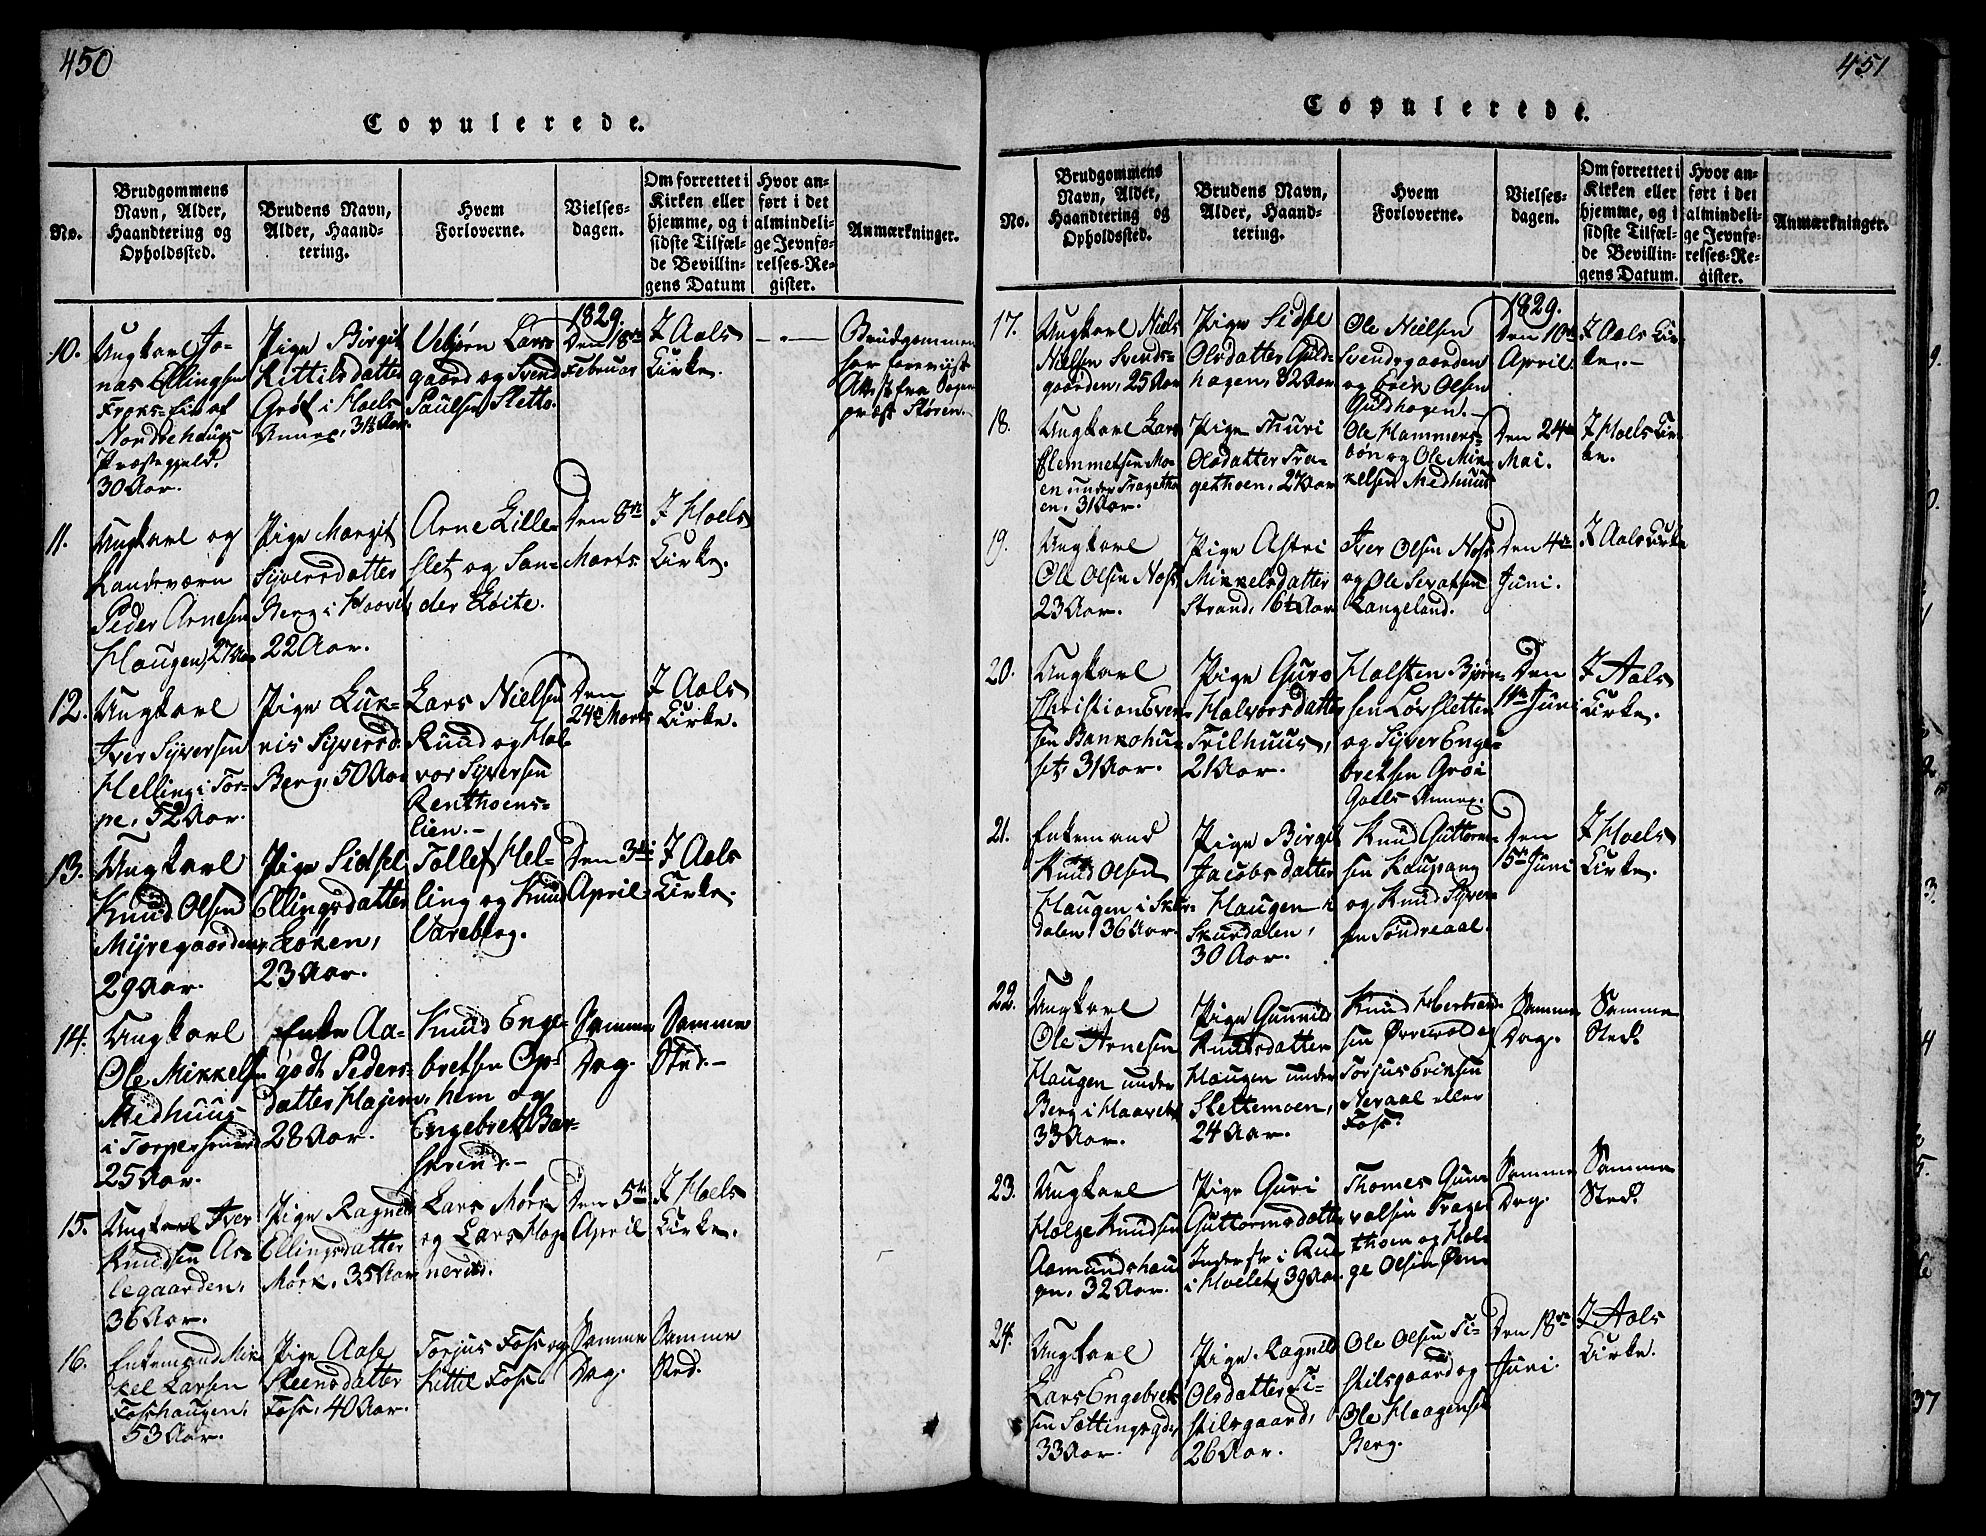 450
Copulerede.
No.
Brudgommens
Navn, Alder,
Haandtering og
Opholdssted.
Brudens Navn,
Alder, Haand-
tering.
Hvem
Forloverne.
Vielses-
dagen.
Om forrettet i
Kirken eller
hjemme, og i
sidste Tilfæl-
de Bevillin-
gens Datum
Hvor an-
ført i det
almindeli-
ge Jevnfø-
relses-Re-
gister.
Anmærkninger.
10.
Ungkarl Jo-
nas Ellingsen
af
Norderhougs
Præstegjeld.
30 Aar.
Pige Birgit
Kittilsdatter
Grøt i Hoels
Annex, 31½ Aar.
Vebjørn Lars-
gaard og Svend
Paulsen Sletto.
1829.
Den 18de
Februar
I Aals
Kirke.
Brudgommen
har foreviist
Attest fra Sogne-
præst Støren.
11.
Ungkarl og
Landeværn
Peder Arnesen
Haugen, 27 Aar
Pige Margit
Syversdatter
Berg i Haavet
22 Aar.
Arne Lille-
slet og San-
der Løite.
Den 8de
Marts
I Hoels
Kirke.
12.
Ungkarl
Iver Syversen
Helling i Tor-
pe, 52 Aar.
Pige Lur-
vis Syversd.
Berg, 50 Aar
Lars Nielsen
Ruud og Hal-
vor Syversen
Renthoens-
lien.-
Den
24de Marts
I Aals
Kirke.
13.
Ungkarl
Knud Olsen
Myregaarden
29 Aar.
Pige Sidsel
Ellingsdatter
Løken,
23 Aar.
Tollef Hel-
ling og Knud
Vareberg.
Den 3die
April
I Aals
Kirke.
14.
Ungkarl
Ole Mikkelsen
Medhuus
i Torpe
25 Aar.
Enke Aa-
godt Peders-
datter Hajem,
28 Aar.
Knud Enge-
bretsen Op-
hem og
Engebret Bar-
skrud.-
Samme
Dag.
Samme
Sted.-
15.
Ungkarl Iver
Knudsen As-
legaarden,
36 Aar.
Pige Ragnild
Ellingsdatter
Mørk, 35 Aar
Lars Mørk
og Lars Hag-
nerud.
Den 5te
April
I Hoels
Kirke.
16.
Enkemand Mik-
kel Larsen
Foshaugen,
53 Aar.
Pige Aase
Steensdatter
Foss, 40 Aar.
Torjus Foss og
Kittil Foss
Samme
Dag.
Samme
Sted.
451
Copulerede.
No.
Brudgommens
Navn, Alder,
Haandtering og
Opholdssted.
Brudens Navn,
Alder, Haand-
tering.
Hvem
Forloverne.
Vielses-
dagen.
Om forrettet i
Kirken eller
hjemme, og i
sidste Tilfæl-
de Bevillin-
gens Datum.
Hvor an-
ført i det
almindeli-
ge Jevnfø-
relses-Re-
gister.
Anmærkninger.
17.
Ungkarl Niels
Nielsen Svends-
gaarden, 25 Aar
Pige Sidsel
Olsdatter Guld-
hagen, 32 Aar
Ole Nielsen
Svendsgaarden
og Erik Olsen
Guldhagen.-
1829.
Den 10de
April.
I Aals Kir-
ke.-
18.
Ungkarl Lars
Clemmetsen Mo-
en under Tragetho-
en, 31 Aar.
Pige Thuri
Olsdatter Tra-
gethoen, 27 Aar
Ole Hammers-
bøn og Ole Mik-
kelsen Medhuus
Den 24de
Mai.
I Hoels Kir-
ke.
19.
Ungkarl
Ole Olsen Noss
23 Aar.
Pige Astri
Mikkelsdatter
Strand, 16½ Aar
Iver Olsen Noss
og Ole Sevatsen
Langeland.
Den 4de
Juni.
I Aals Kirke
20.
Ungkarl
Christian Even-
sen Bankohu-
set, 31 Aar.
Pige Guro
Halvorsdatter
Trilhuus,
21 Aar.
Halsten Bjørn-
sen Lørsletten
og Syver Enge-
bretsen Grøi
Goels Annex.
Den
11te Juni
I Aals
Kirke.
21.
Enkemand
Knud Olsen
Haugen i Skur-
dalen, 36 Aar.
Pige Birgit
Jacobsdatter
Haugen i
Skurdalen,
30 Aar.
Knud Guttorm-
sen Kaupang
og Knud Syver-
sen Søndreaal.
Den
15de Juni
I Hoels
Kirke.
22.
Ungkarl
Ole Arnesen
Haugen under
Berg i Haavet
33 Aar.
Pige Gunnild
Knudsdatter
Haugen under
Slettemoen,
24 Aar.
Knud Herbrand-
sen Ørrevolde
Torjus Eriksen
Neraal eller
Foss.
Samme
Dag.
Samme
Sted.
23.
Ungkarl
Holge Knudsen
Aamundshau-
gen, 32 Aar.
Pige Guri
Guttormsdatter
i Hoelet, 39 Aar.
Thomes Gun-
valsen Traget-
thoen og Hol-
ge Olsen Øen
Samme
Dag.
Samme
Sted.
24.
Ungkarl
Lars Engebret-
sen Sættingsgd.
33 Aar.
Pige Ragnild
Olsdatter Ti-
stilsgaard,
26 Aar.
Ole Olsen Ti-
stilsgaard og
Ole Haagensen
Berg.
Den 18de
Juni.
I Aals
Kirke.